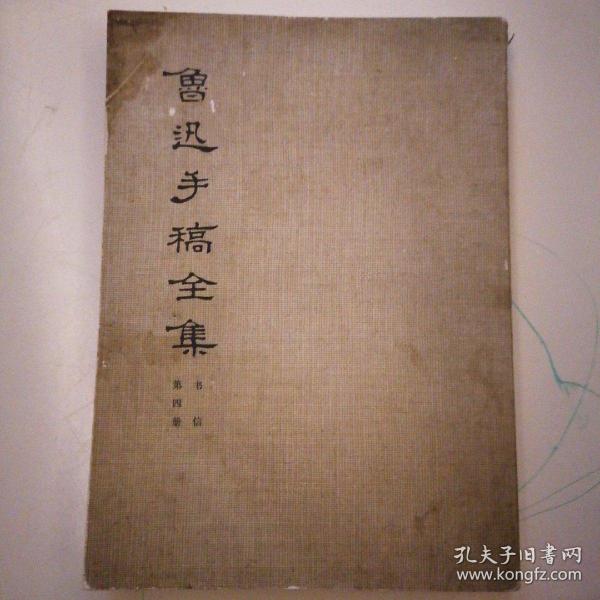 魯迅手稿全集
书信
第四册
孔夫子旧書网
www.kongfz.com